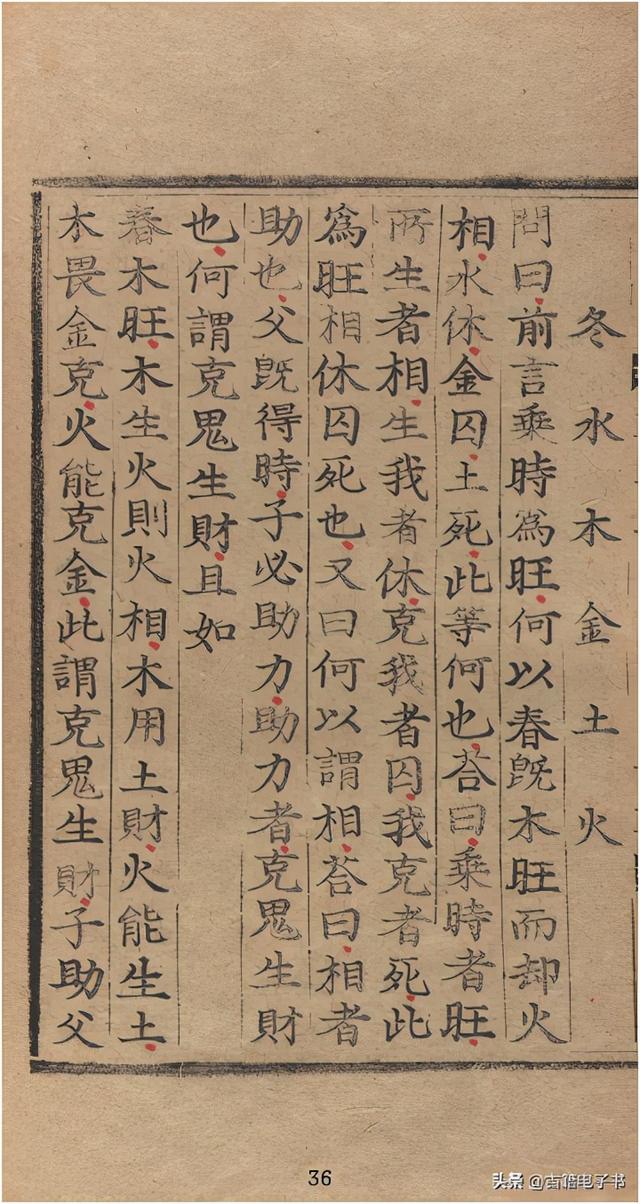 冬水木金土火
問曰前言乘時爲旺何以春旣木旺而却火
相水休金囚土死此等何也荅曰乘時者旺
所生者相生我者休克我者囚我克者死此
爲旺相休囚死也又曰何以謂相荅曰相者
助也父旣得時子必助力助力者克鬼生財
也何謂克鬼生財且如
春木旺木生火則火相木用土財火能生土
木畏金克火能克金此謂克鬼生財子助父
36
头条@古籍电子书